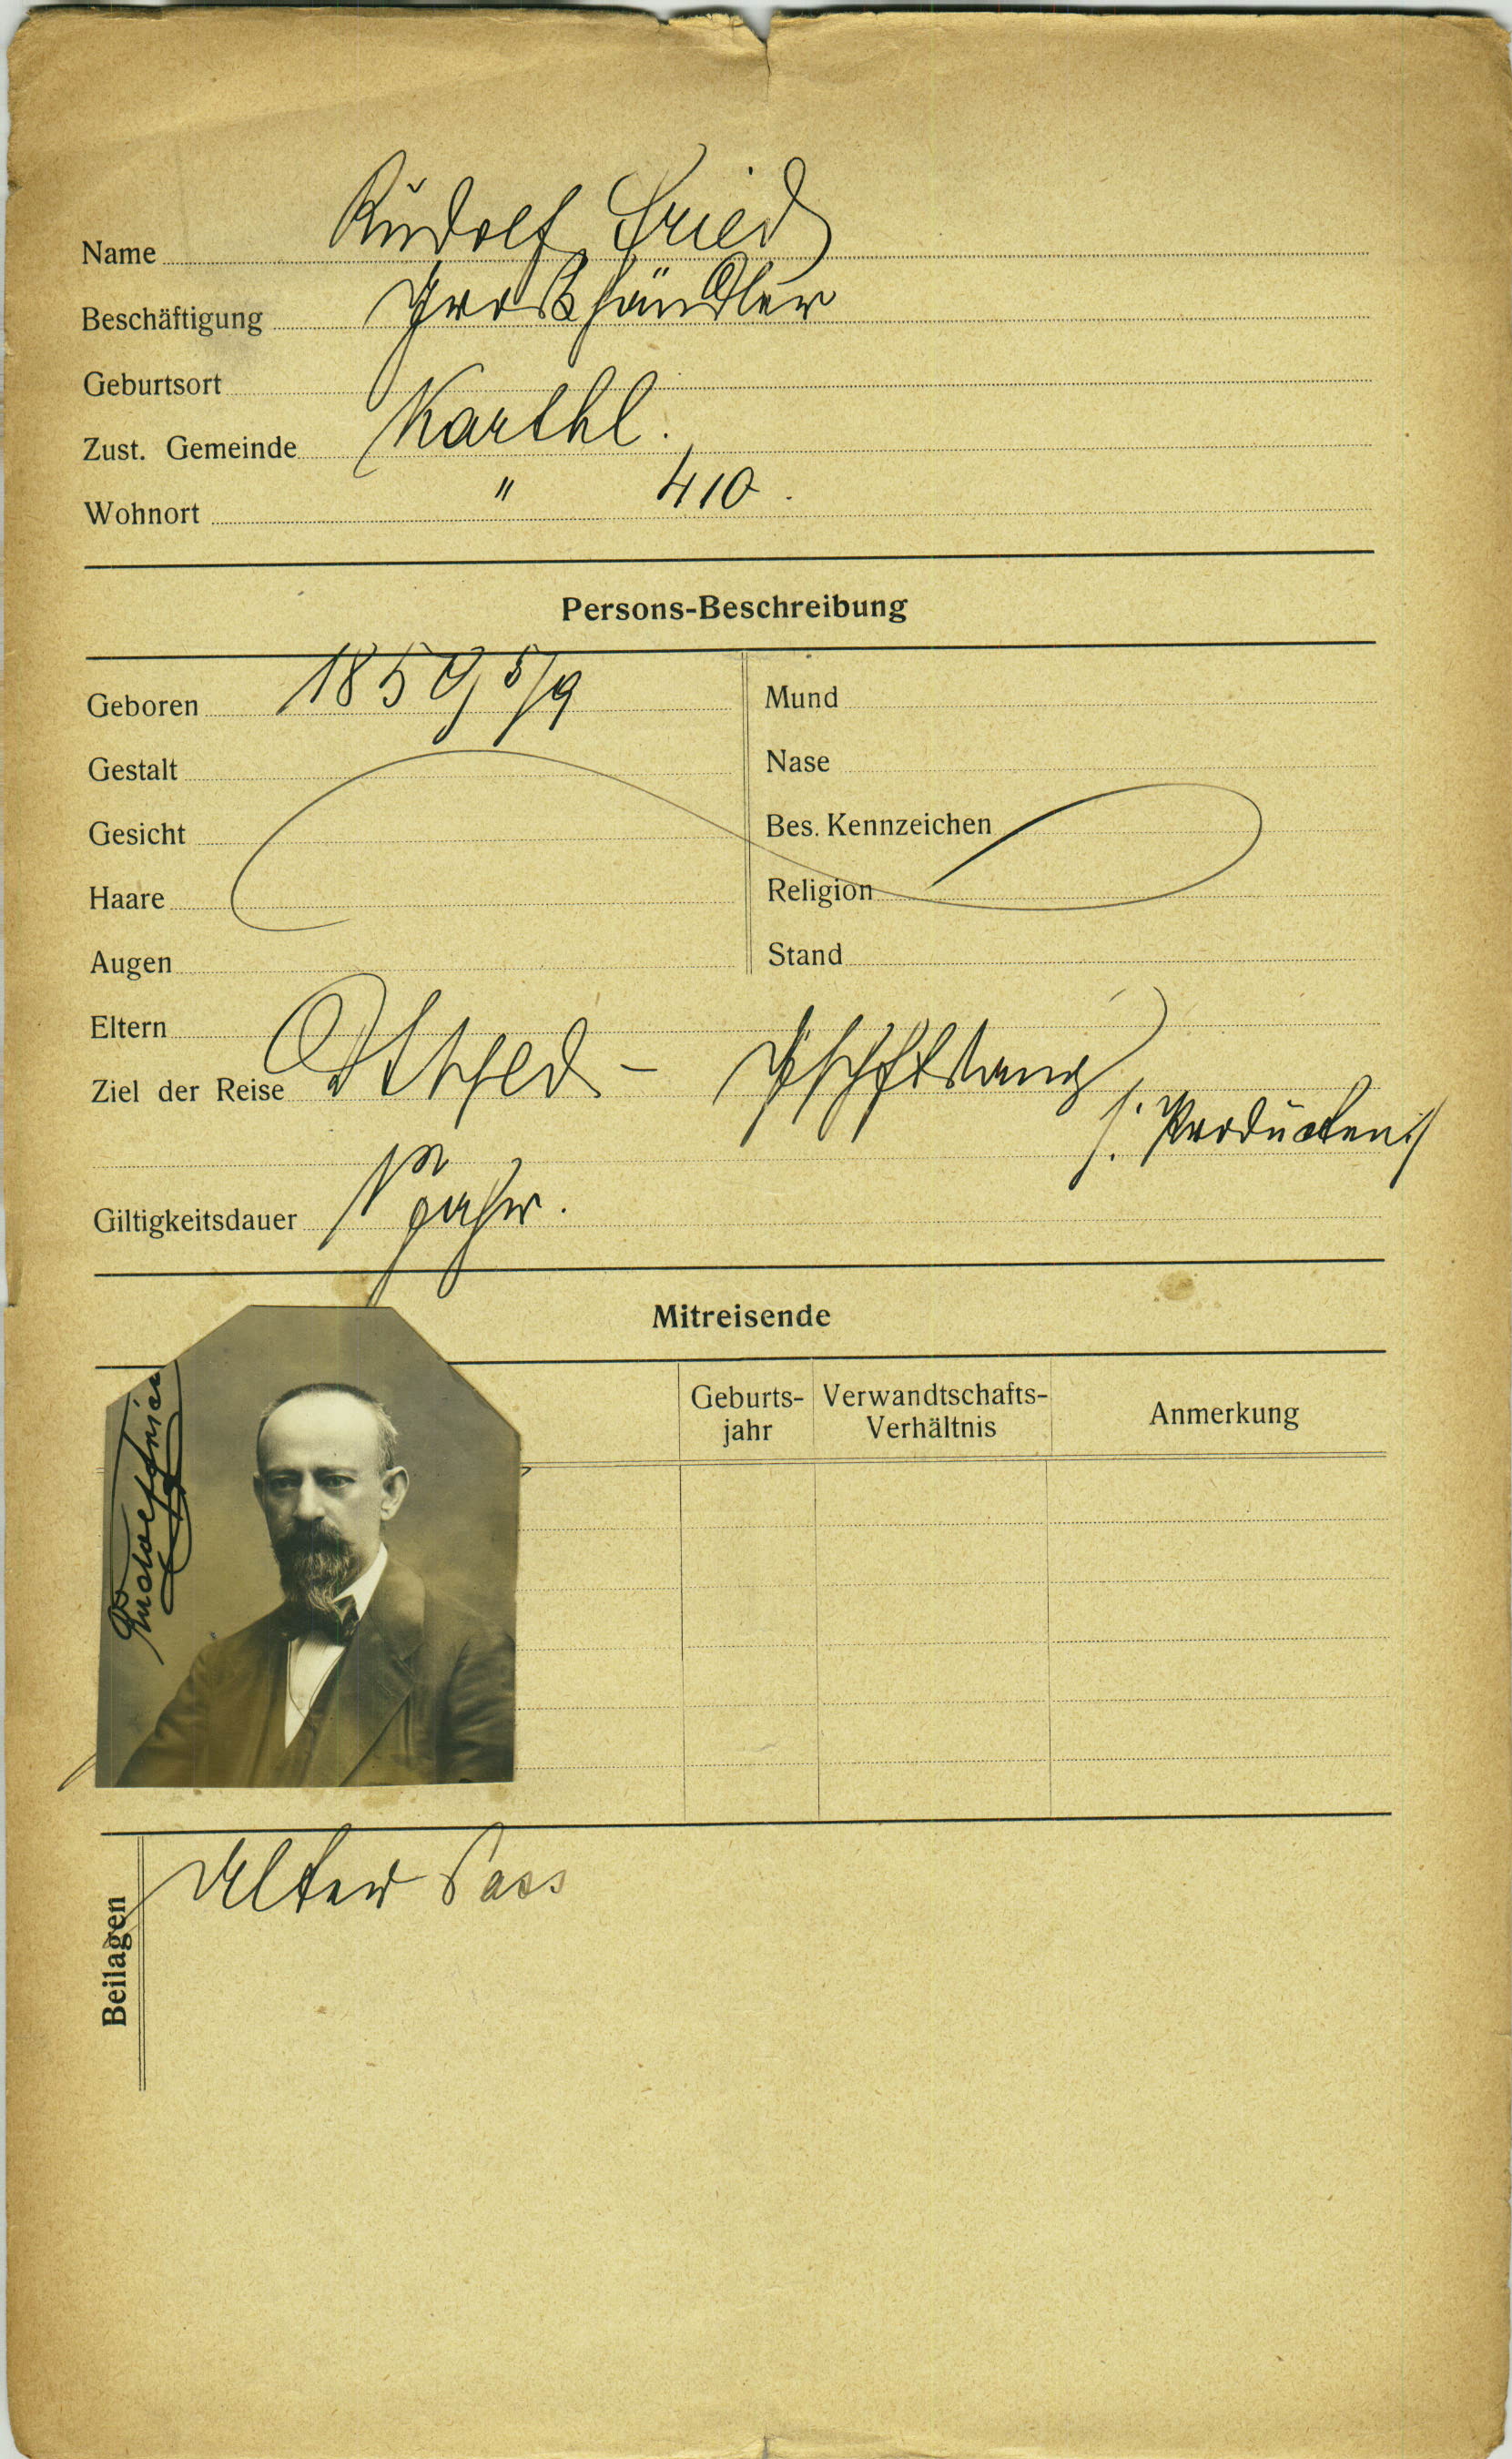 Name Rudolf Fried
Beschäftigung Großhändler
Geburtsort
Zust. Gemeinde Karthl.
Wohnort " 410.
Persons-Beschreibung
Geboren 1859 5/9
Mund
Gestalt
Nase
Gesicht
Bes. Kennzeichen
Haare
Religion
Augen
Stand
Eltern
Ziel der Reise
/: Producten :/
Giltigkeitsdauer 1 Jahr.
Mitreisende
Geburts-
jahr
Verwandtschafts-
Verhältnis
Anmerkung
Rudolf Fried
Beilagen
Alter Pass